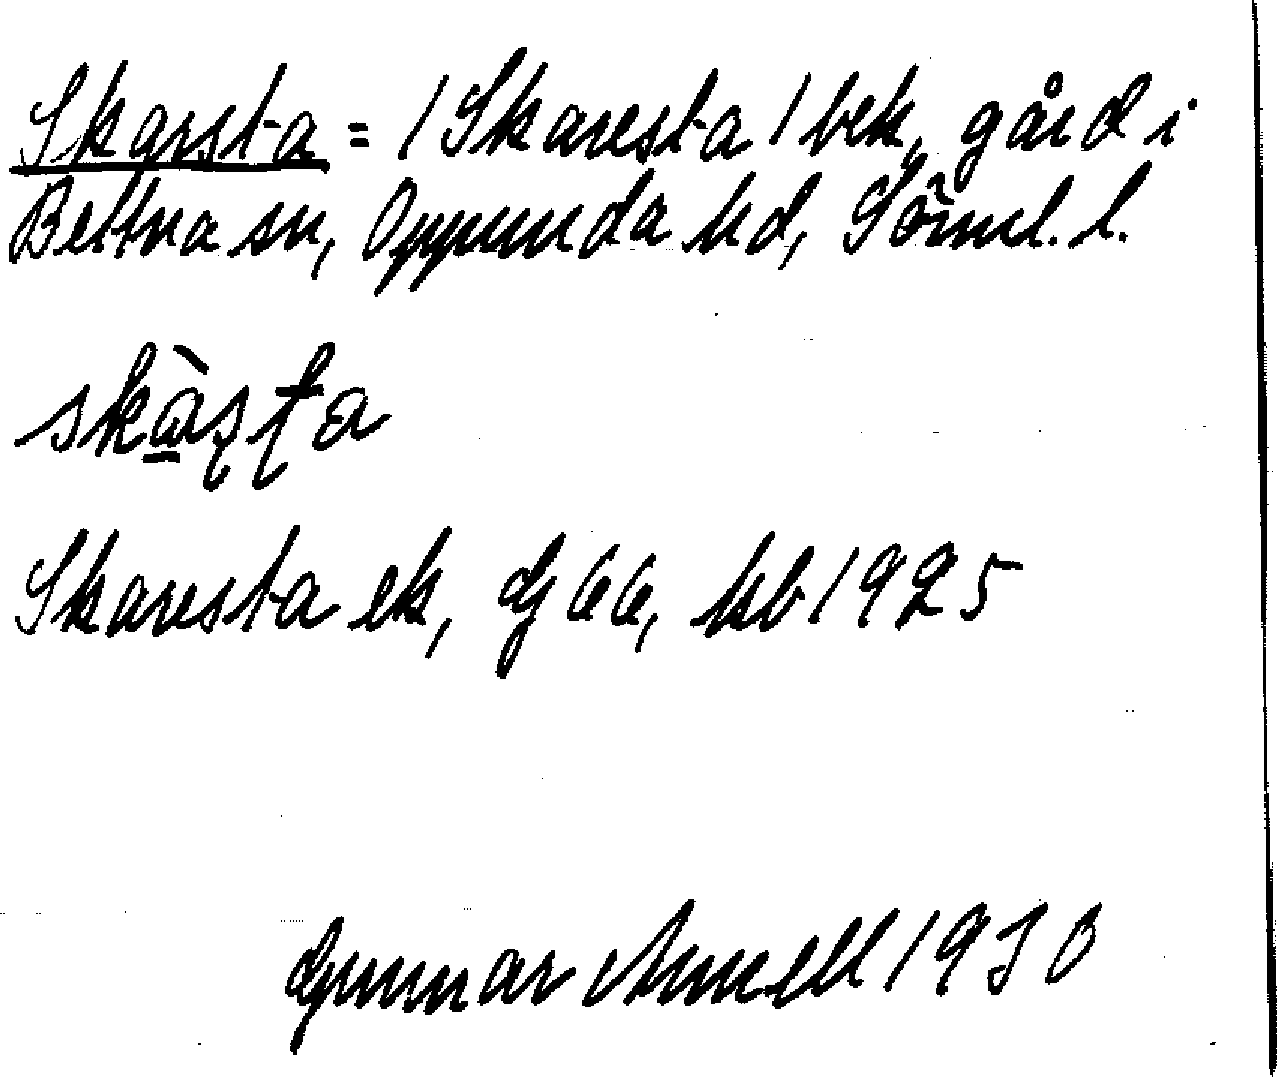 Skarsta = / Skaresta / bek, gård i
Bettna sn, Oppunda hd, Söml. l.
skàʂʈa
Skaresta ek, dj 66, kb 1925
Gunnar 1930